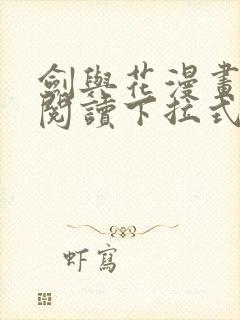 劍與花漫畫
閱讀下拉式
虾寫